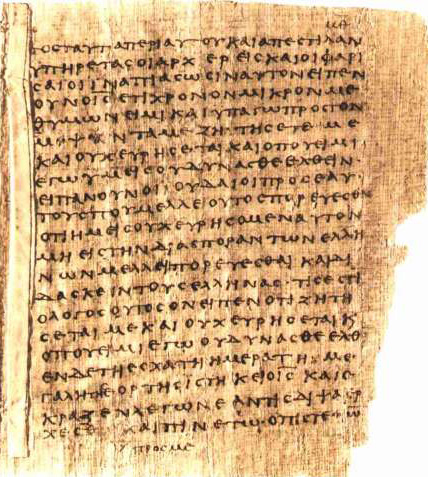 ΜΘ
ΤΟϹΤΑΥΤΑΠΕΡΙΑΥΤΟΥΚΑΙΑΠΕϹΤΙΛΑΝ
ΥΠΗΡΕΤΑϹΟΙΑΡΧΙΕΡΕΙϹΚΑΙΟΙΦΑΡΙ
ϹΑΙΟΙΙΝΑΠΙΑϹΩϹΙΝΑΥΤΟΝΕΙΠΕΝ
ΟΥΝΟΙ̅Ϲ̅ΕΤΙΧΡΟΝΟΝΜΙΚΡΟΝΜΕ
ΘΥΜΩΝΕΙΜΙΚΑΙΥΠΑΓΩΠΡΟϹΤΟΝ
ΠΕΜΨΑΝΤΑΜΕ·ΖΗΤΗϹΕΤΕΜΕ
ΚΑΙΟΥΧΕΥΡΗϹΕΤΑΙΚΑΙΟΠΟΥΕΙΜΙ
ΕΓΩΥΜΕΙϹΟΥΔΥΝΑϹΘΕΕΛΘΕΙΝ·
ΕΙΠΑΝΟΥΝΟΙΙΟΥΔΑΙΟΙΠΡΟϹΕΑΥ
ΤΟΥϹΠΟΥΜΕΛΛΕΙΟΥΤΟϹΠΟΡΕΥΕϹΘ
ΟΤΙΗΜΕΙϹΟΥΧΕΥΡΗϹΟΜΕΝΑΥΤΟΝ
ΜΗΕΙϹΤΗΝΔΙΑϹΠΟΡΑΝΤΩΝΕΛΛΗ
ΝΩΝΜΕΛΛΕΙΠΟΡΕΥΕϹΘΑΙΚΑΙΔΙ
ΔΑϹΚΕΙΝΤΟΥϹΕΛΛΗΝΑϹ·ΤΙϹΕϹΤΙ
ΟΛΟΓΟϹΟΥΤΟϹΟΝΕΙΠΕΝΟΤΙΖΗΤΗ
ϹΕΤΑΙΜΕΚΑΙΟΥΧΕΥΡΗϹΕΤΑΙΚ
ΟΠΟΥΕΙΜΙΕΓΩΟΥΔΥΝΑϹΘΕΕΛΘ
ΕΝΔΕΤΗΕϹΧΑΤΗΗΜΕΡΑΤΗΜΕ
ΓΑΛΗΤΗϹΕΟΡΤΗϹΙϹΤΗΚΕΙΟΙ̅Ϲ̅ΚΑΙΕ
ΚΡΑΖΕΝΛΕΓΩΝΕΑΝΤΙϹΔΙΨΑΕΡ
ΧΕϹΘΩΚΑΙΠΙΝΕΤΩ·ΟΠΙϹΤΕΥΩ
ΠΡΟϹΜΕ